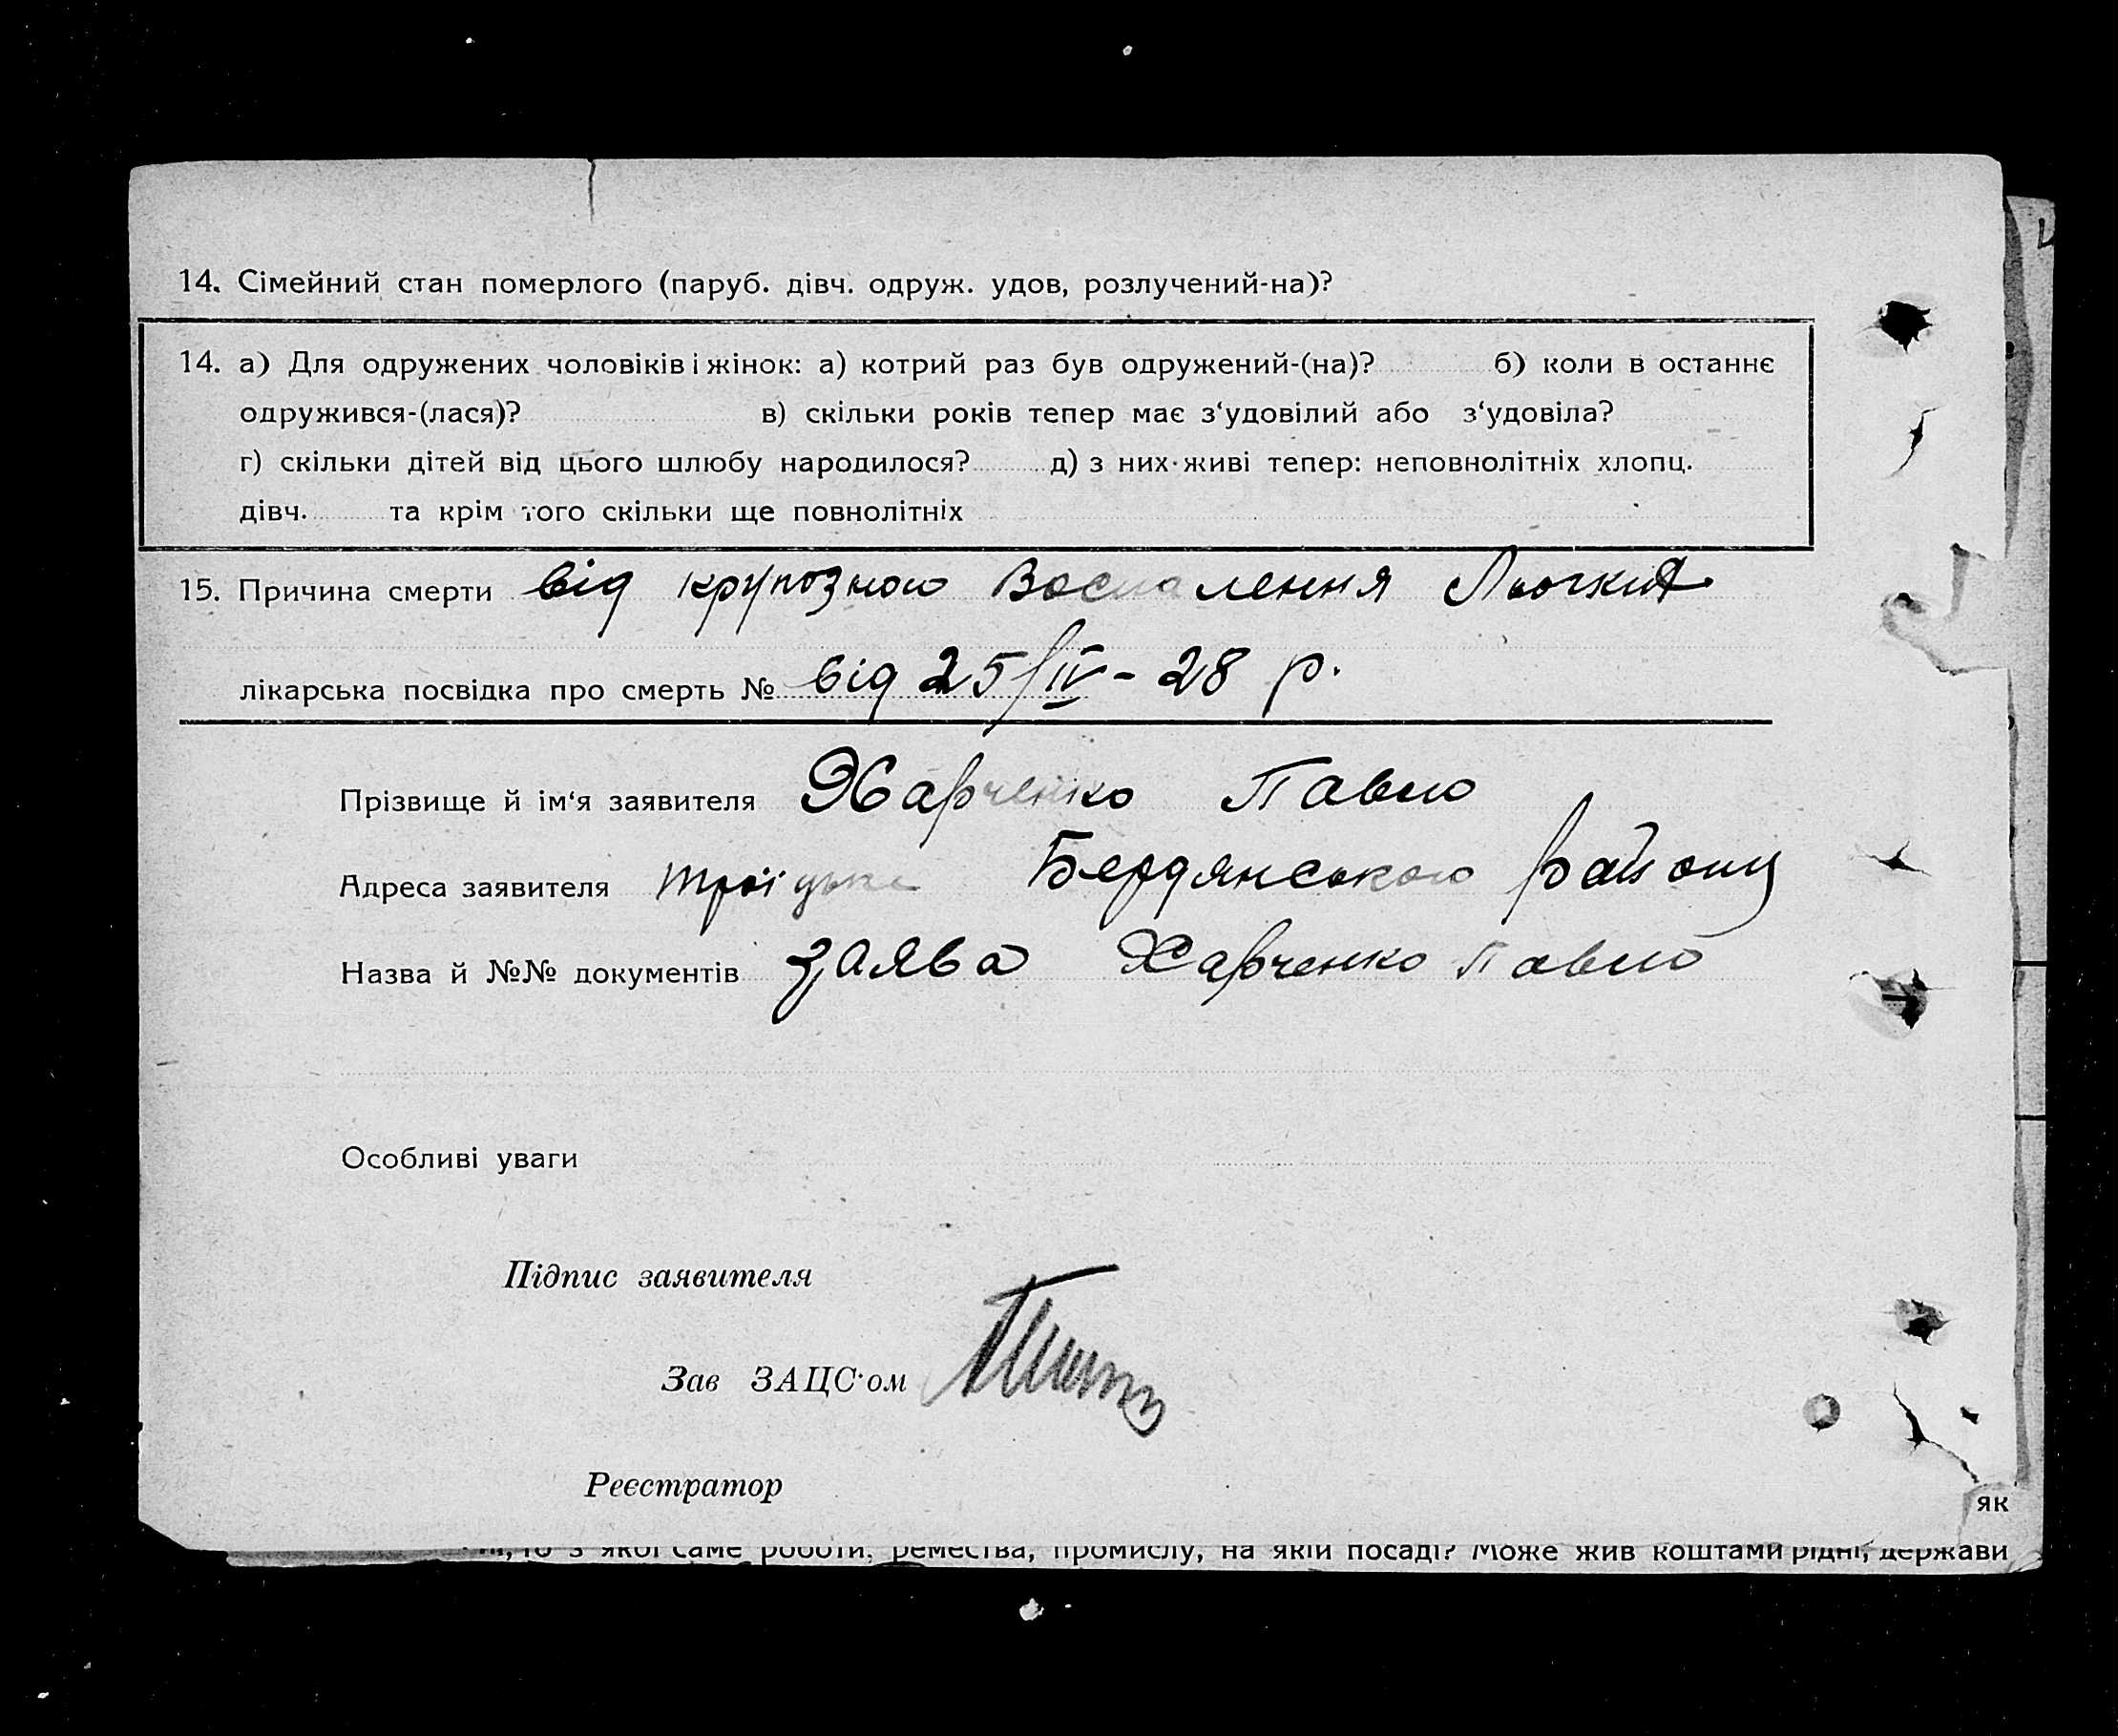 14. Сімейний стан померлого (паруб. дівч. одруж. удов, розлучений-на)?
14. а) Для одружених чоловіків і жінок: а) котрий раз був одружений-(на)? б) коли в останнє
одружився-(лася)? в) скільки років тепер має з‘удовілий або з‘удовіла?
г) скільки дітей від цього шлюбу народилося? д) з них живі тепер: неповнолітніх хлопц.
дівч. та крім того скільки ще повнолітніх
15. Причина смерти від крупозного Воспалення Льогких
лікарська посвідка про смерть № від 25/IV - 28 р.
Прізвище й ім‘я заявителя Харченко Павло
Адреса заявителя Троїцьке Бердянського району
Назва й №№ документів заява Харченко Павло
Особливі уваги
Підпис заявителя
Зав ЗАЦС‘ом
Реєстратор
як
з якої саме роботи, ремества, промислу, на якій посаді? Може жив коштами рідні, держави